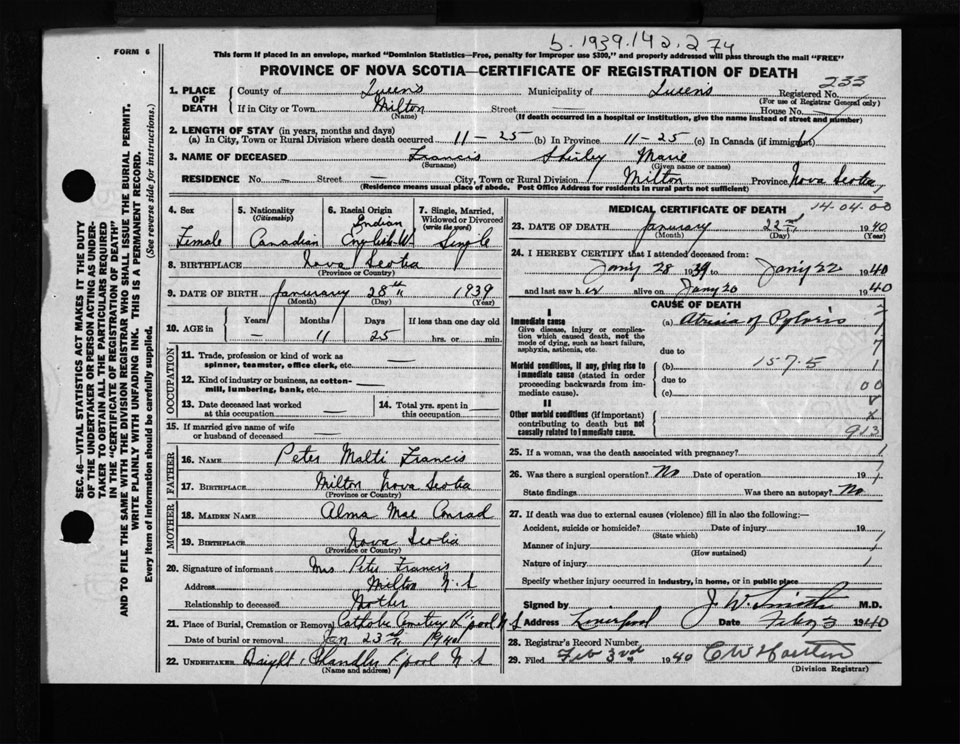 b. 1939.142.274
FORM 6
This form if placed in an envelope, marked "Dominion Statistics—Free, penalty for improper use $300," and properly addressed will pass through the mail "FREE"
PROVINCE OF NOVA SCOTIA—CERTIFICATE OF REGISTRATION OF DEATH
SEC. 46—VITAL STATISTICS ACT MAKES IT THE DUTY
OF THE UNDERTAKER OR PERSON ACTING AS UNDER-
TAKER TO OBTAIN ALL THE PARTICULARS REQUIRED
IN THE "CERTIFICATE OF REGISTRATION OF DEATH"
AND TO FILE THE SAME WITH THE DIVISION REGISTRAR WHO SHALL ISSUE THE BURIAL PERMIT.
WRITE PLAINLY WITH UNFADING INK. THIS IS A PERMANENT RECORD.
Every item of information should be carefully supplied. (See reverse side for instructions.)
1. PLACE OF DEATH County of Queens Municipality of Queens Registered No. 233
(For use of Registrar General only)
If in City or Town Milton Street — House No. —
(Name) (If death occurred in a hospital or institution, give the name instead of street and number)
2. LENGTH OF STAY (in years, months and days)
(a) In City, Town or Rural Division where death occurred 11-25 (b) In Province 11-25 (c) In Canada (if immigrant)
3. NAME OF DECEASED Francis Shirley Marie
(Surname) (Given name or names)
RESIDENCE No. — Street — City, Town or Rural Division Milton Province Nova Scotia
(Residence means usual place of abode. Post Office Address for residents in rural parts not sufficient)
4. Sex Female
5. Nationality (Citizenship) Canadian
6. Racial Origin Indian English
7. Single, Married, Widowed or Divorced (write the word) Single
8. BIRTHPLACE Nova Scotia
(Province or Country)
9. DATE OF BIRTH January 28th 1939
(Month) (Day) (Year)
10. AGE in Years — Months 11 Days 25 If less than one day old hrs. or min.
OCCUPATION
11. Trade, profession or kind of work as spinner, teamster, office clerk, etc. —
12. Kind of industry or business, as cotton-mill, lumbering, bank, etc. —
13. Date deceased last worked at this occupation —
14. Total yrs. spent in this occupation —
15. If married give name of wife or husband of deceased —
FATHER
16. NAME Peter Malti Francis
17. BIRTHPLACE Milton Nova Scotia
(Province or Country)
MOTHER
18. MAIDEN NAME Alma Mae Conrad
19. BIRTHPLACE Nova Scotia
(Province or Country)
20. Signature of informant Mrs Peter Francis
Address Milton N.S
Relationship to deceased Mother
21. Place of Burial, Cremation or Removal Catholic Cemetery L'pool N.S
Date of burial or removal Jan 23rd 1940
22. UNDERTAKER Chandler L'pool N.S
(Name and address)
MEDICAL CERTIFICATE OF DEATH 14-04-00
23. DATE OF DEATH January 22nd 1940
(Month) (Day) (Year)
24. I HEREBY CERTIFY that I attended deceased from:
Jan'y 28 1939 to Jan'y 22 1940
and last saw her alive on Jan'y 20 1940
CAUSE OF DEATH
I
Immediate cause (a) Atresia of Pyloris
Give disease, injury or complication which caused death, not the mode of dying, such as heart failure, asphyxia, asthenia, etc.
due to
Morbid conditions, if any, giving rise to immediate cause (stated in order proceeding backwards from immediate cause). (b) 157.5
due to
(c)
II
Other morbid conditions (if important) contributing to death but not causally related to immediate cause.
913
25. If a woman, was the death associated with pregnancy?
26. Was there a surgical operation? No Date of operation 19
State findings Was there an autopsy? No
27. If death was due to external causes (violence) fill in also the following:—
Accident, suicide or homicide? Date of injury 19
(State which)
Manner of injury
(How sustained)
Nature of injury
Specify whether injury occurred in industry, in home, or in public place
Signed by J. W. Smith M.D.
Address Liverpool Date Feby 3 1940
28. Registrar's Record Number
29. Filed Feb 3rd 1940
(Division Registrar)